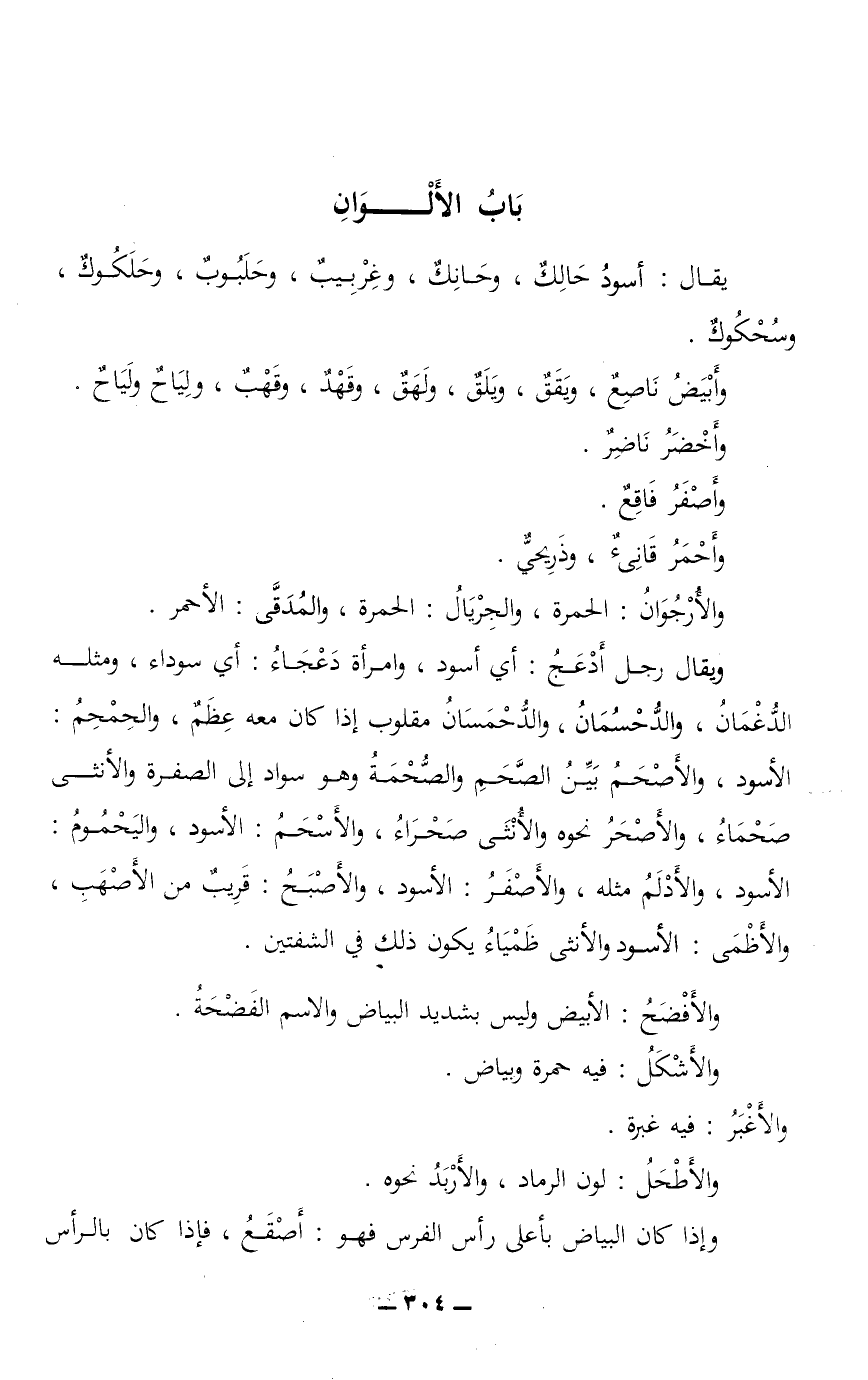 بَابُ الأَلْـــــوَانِ
يقـال : أسودُ حَالِكٌ ، وحَـانِكٌ ، وغِرْبِـيبٌ ، وحَلَبُـوبٌ ، وحَلَكُـوكٌ ،
وسُحْكُوكٌ .
وأَبْيَضُ نَاصِعٌ ، ويَقَقٌ ، ويَلَقٌ ، ولَهَقٌ ، وقَهْدٌ ، وقَهْبٌ ، ولِيَاحٌ ولَيَاحٌ .
وأَخْضَرُ نَاضِرٌ .
وأَصْفَرُ فَاقِعٌ .
وأَحْمَرُ قَانِىءٌ ، وذَرِيحيٌّ .
والأُرْجُوَانُ : الحمرة ، والجِرْيَالُ : الحمرة ، والمُدَقَّى : الأحمر .
ويقال رجـل أَدْعَجُ : أي أسود ، وامـرأة دَعْجَـاءُ : أي سوداء ، ومثلــه
الدُّغْمَانُ ، والدُّحْسُمَانُ ، والدُّحْمَسَانُ مقلوب إذا كان معه عِظَمٌ ، والحِمْحِمُ :
الأسود ، والأَصْحَـمُ بَيِّـنُ الصَّحَـمِ والصُّحْمَـةُ وهـو سواد إلى الصفـرة والأنثــى
صَحْمَاءُ ، والأَصْحَرُ نحوه والأُنْثَـى صَحْـرَاءُ ، والأَسْحَـمُ : الأسود ، واليَحْمُـومُ :
الأسود ، والأَدْلَمُ مثله ، والأَصْفَـرُ : الأسود ، والأَصْبَـحُ : قَرِيبٌ من الأَصْهَبِ ،
والأَظْمَى : الأسـود والأنثى ظَمْيَاءُ يكون ذلك في الشفتين .
والأَفْضَحُ : الأبيض وليس بشديد البياض والاسم الفَضْحَةُ .
والأَشْكَلُ : فيه حمرة وبياض .
والأَغْبَرُ : فيه غبرة .
والأَطْحَلُ : لون الرماد ، والأَرْبَدُ نحوه .
وإذا كان البياض بأعلى رأس الفرس فهـو : أَصْقَـعُ ، فإذا كان بالـرأس
ــ ٣٠٤ ــ